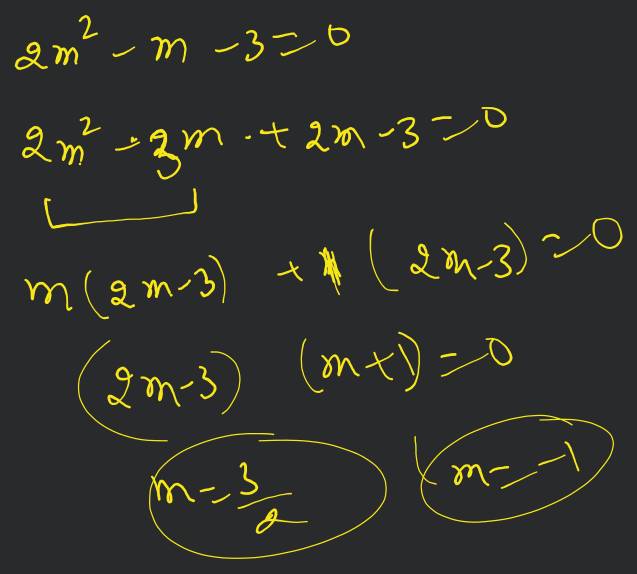 2m² - m - 3 = 0
2m² - 3m + 2m - 3 = 0
m(2m-3) + 1(2m-3) = 0
(2m-3) (m+1) = 0
m = 3/2 m = -1